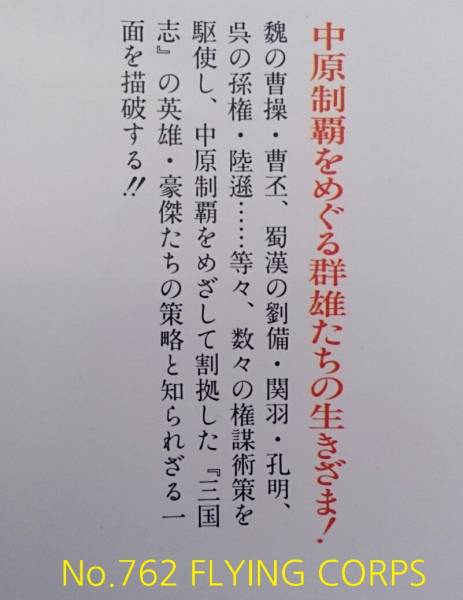 中原制覇をめぐる群雄たちの生きざま！
魏の曹操・曹丕、蜀漢の劉備・関羽・孔明、
呉の孫権・陸遜……等々、数々の権謀術策を
駆使し、中原制覇をめざして割拠した『三国
志』の英雄・豪傑たちの策略と知られざる一
面を描破する!!
No.762 FLYING CORPS